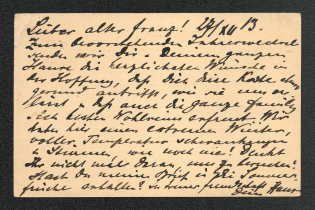 Lieber alter Franz! 27/XII 13.
Zum bevorstehenden Jahreswechsel
sende wir Dir & Deinem ganzen
Hause die herzlichsten Wünsche in
der Hoffnung, daß Dich diese Karte eben
gesund antrifft, wie sie uns
& daß auch die ganze family
sich besten Wohlseins erfreut. Wir
haben hier einen extremen Winter,
voller Temperaturschwankungen
& Stürmen, wie noch nie! Denkst
Du nicht mal daran, uns zu
Hast Du meinen Brief in die Sommer
frische erhalten? In treuer Freundschaft
Dein Hans